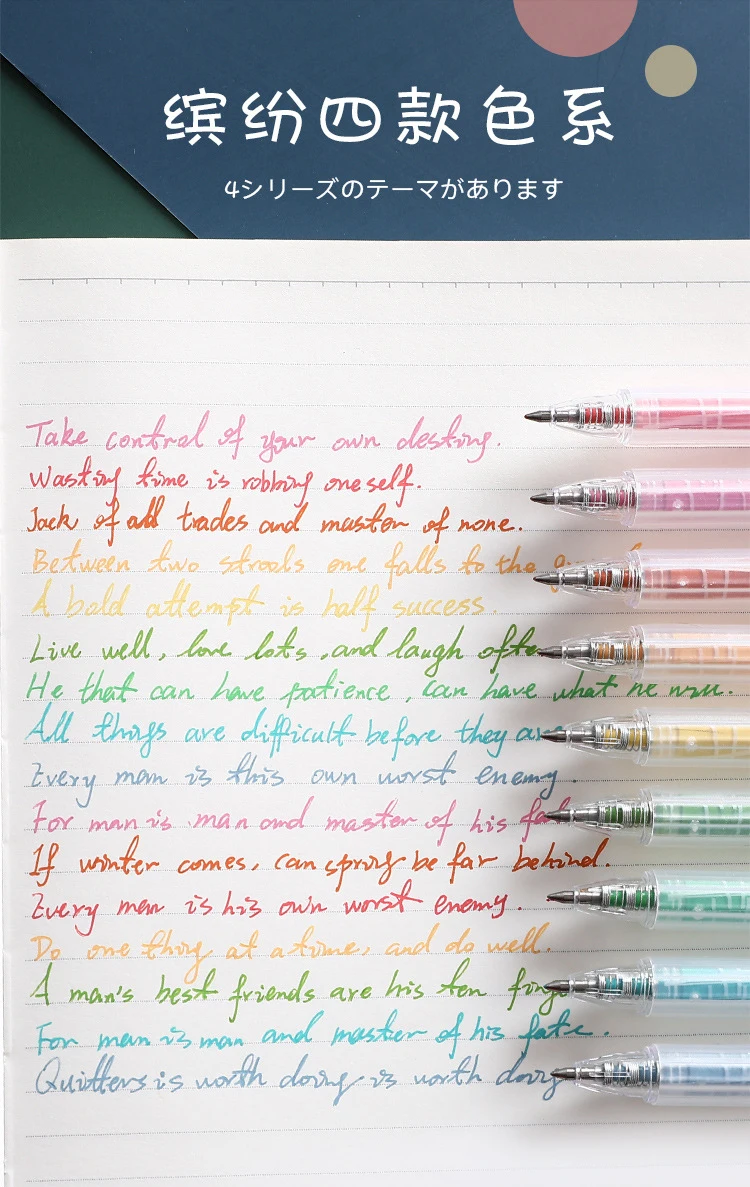 缤纷四款色系
4シリーズのテーマがあります
Take control of your own destiny.
Wasting time is robbing oneself.
Jack of all trades and master of none.
Between two strools one falls to the
A bold attempt is half success.
Live well, love lots, and laugh often
He that can have patience, can have what he will.
All things are difficult before they are
Every man is this own worst enemy.
For man is man and master of his fate
If winter comes, can spring be far behind.
Every man is his own worst enemy.
Do one thing at a time, and do well.
A man's best friends are his ten
For man is man and master of his fate.
Quitters is worth doing is worth doing